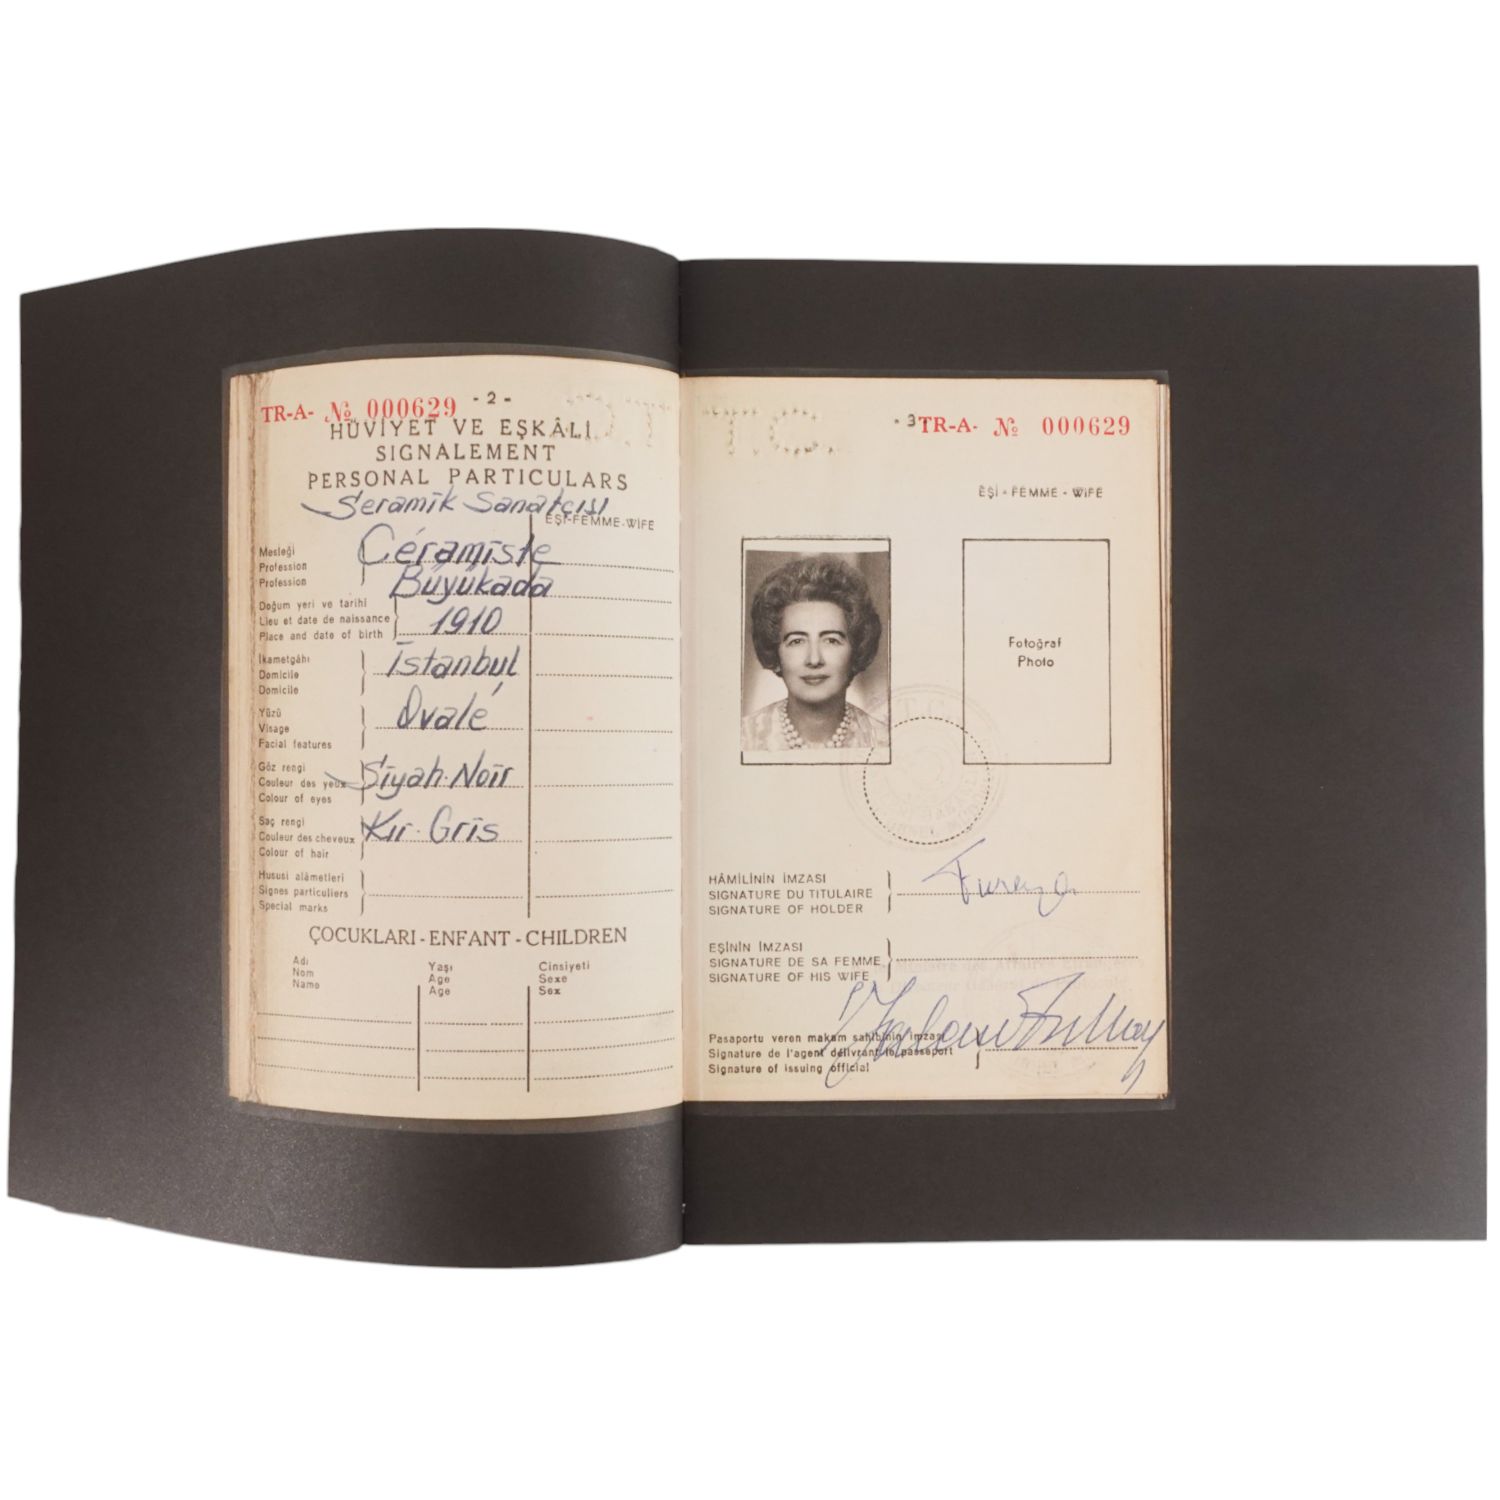 TR-A- № 000629
- 2 -
HÜVİYET VE EŞKÂLİ
SIGNALEMENT
PERSONAL PARTICULARS
Seramik Sanatçısı
EŞİ-FEMME-WIFE
Mesleği
Profession
Profession
Céramiste
Büyükada
Doğum yeri ve tarihi
Lieu et date de naissance
Place and date of birth
1910
İkametgâhı
Domicile
Domicile
İstanbul
Yüzü
Visage
Facial features
Ovalé
Göz rengi
Couleur des yeux
Colour of eyes
Siyah-Noir
Saç rengi
Couleur des cheveux
Colour of hair
Kır-Gris
Hususi alâmetleri
Signes particuliers
Special marks
ÇOCUKLARI - ENFANT - CHILDREN
Adı
Nom
Name
Yaşı
Age
Age
Cinsiyeti
Sexe
Sex
T.C.
- 3
TR-A- № 000629
EŞİ - FEMME - WIFE
Fotoğraf
Photo
T.C.
HÂMİLİNİN İMZASI
SIGNATURE DU TITULAIRE
SIGNATURE OF HOLDER
EŞİNİN İMZASI
SIGNATURE DE SA FEMME
SIGNATURE OF HIS WIFE
Pasaportu veren makam sahibinin imzası
Signature de l'agent délivrant le passeport
Signature of issuing official